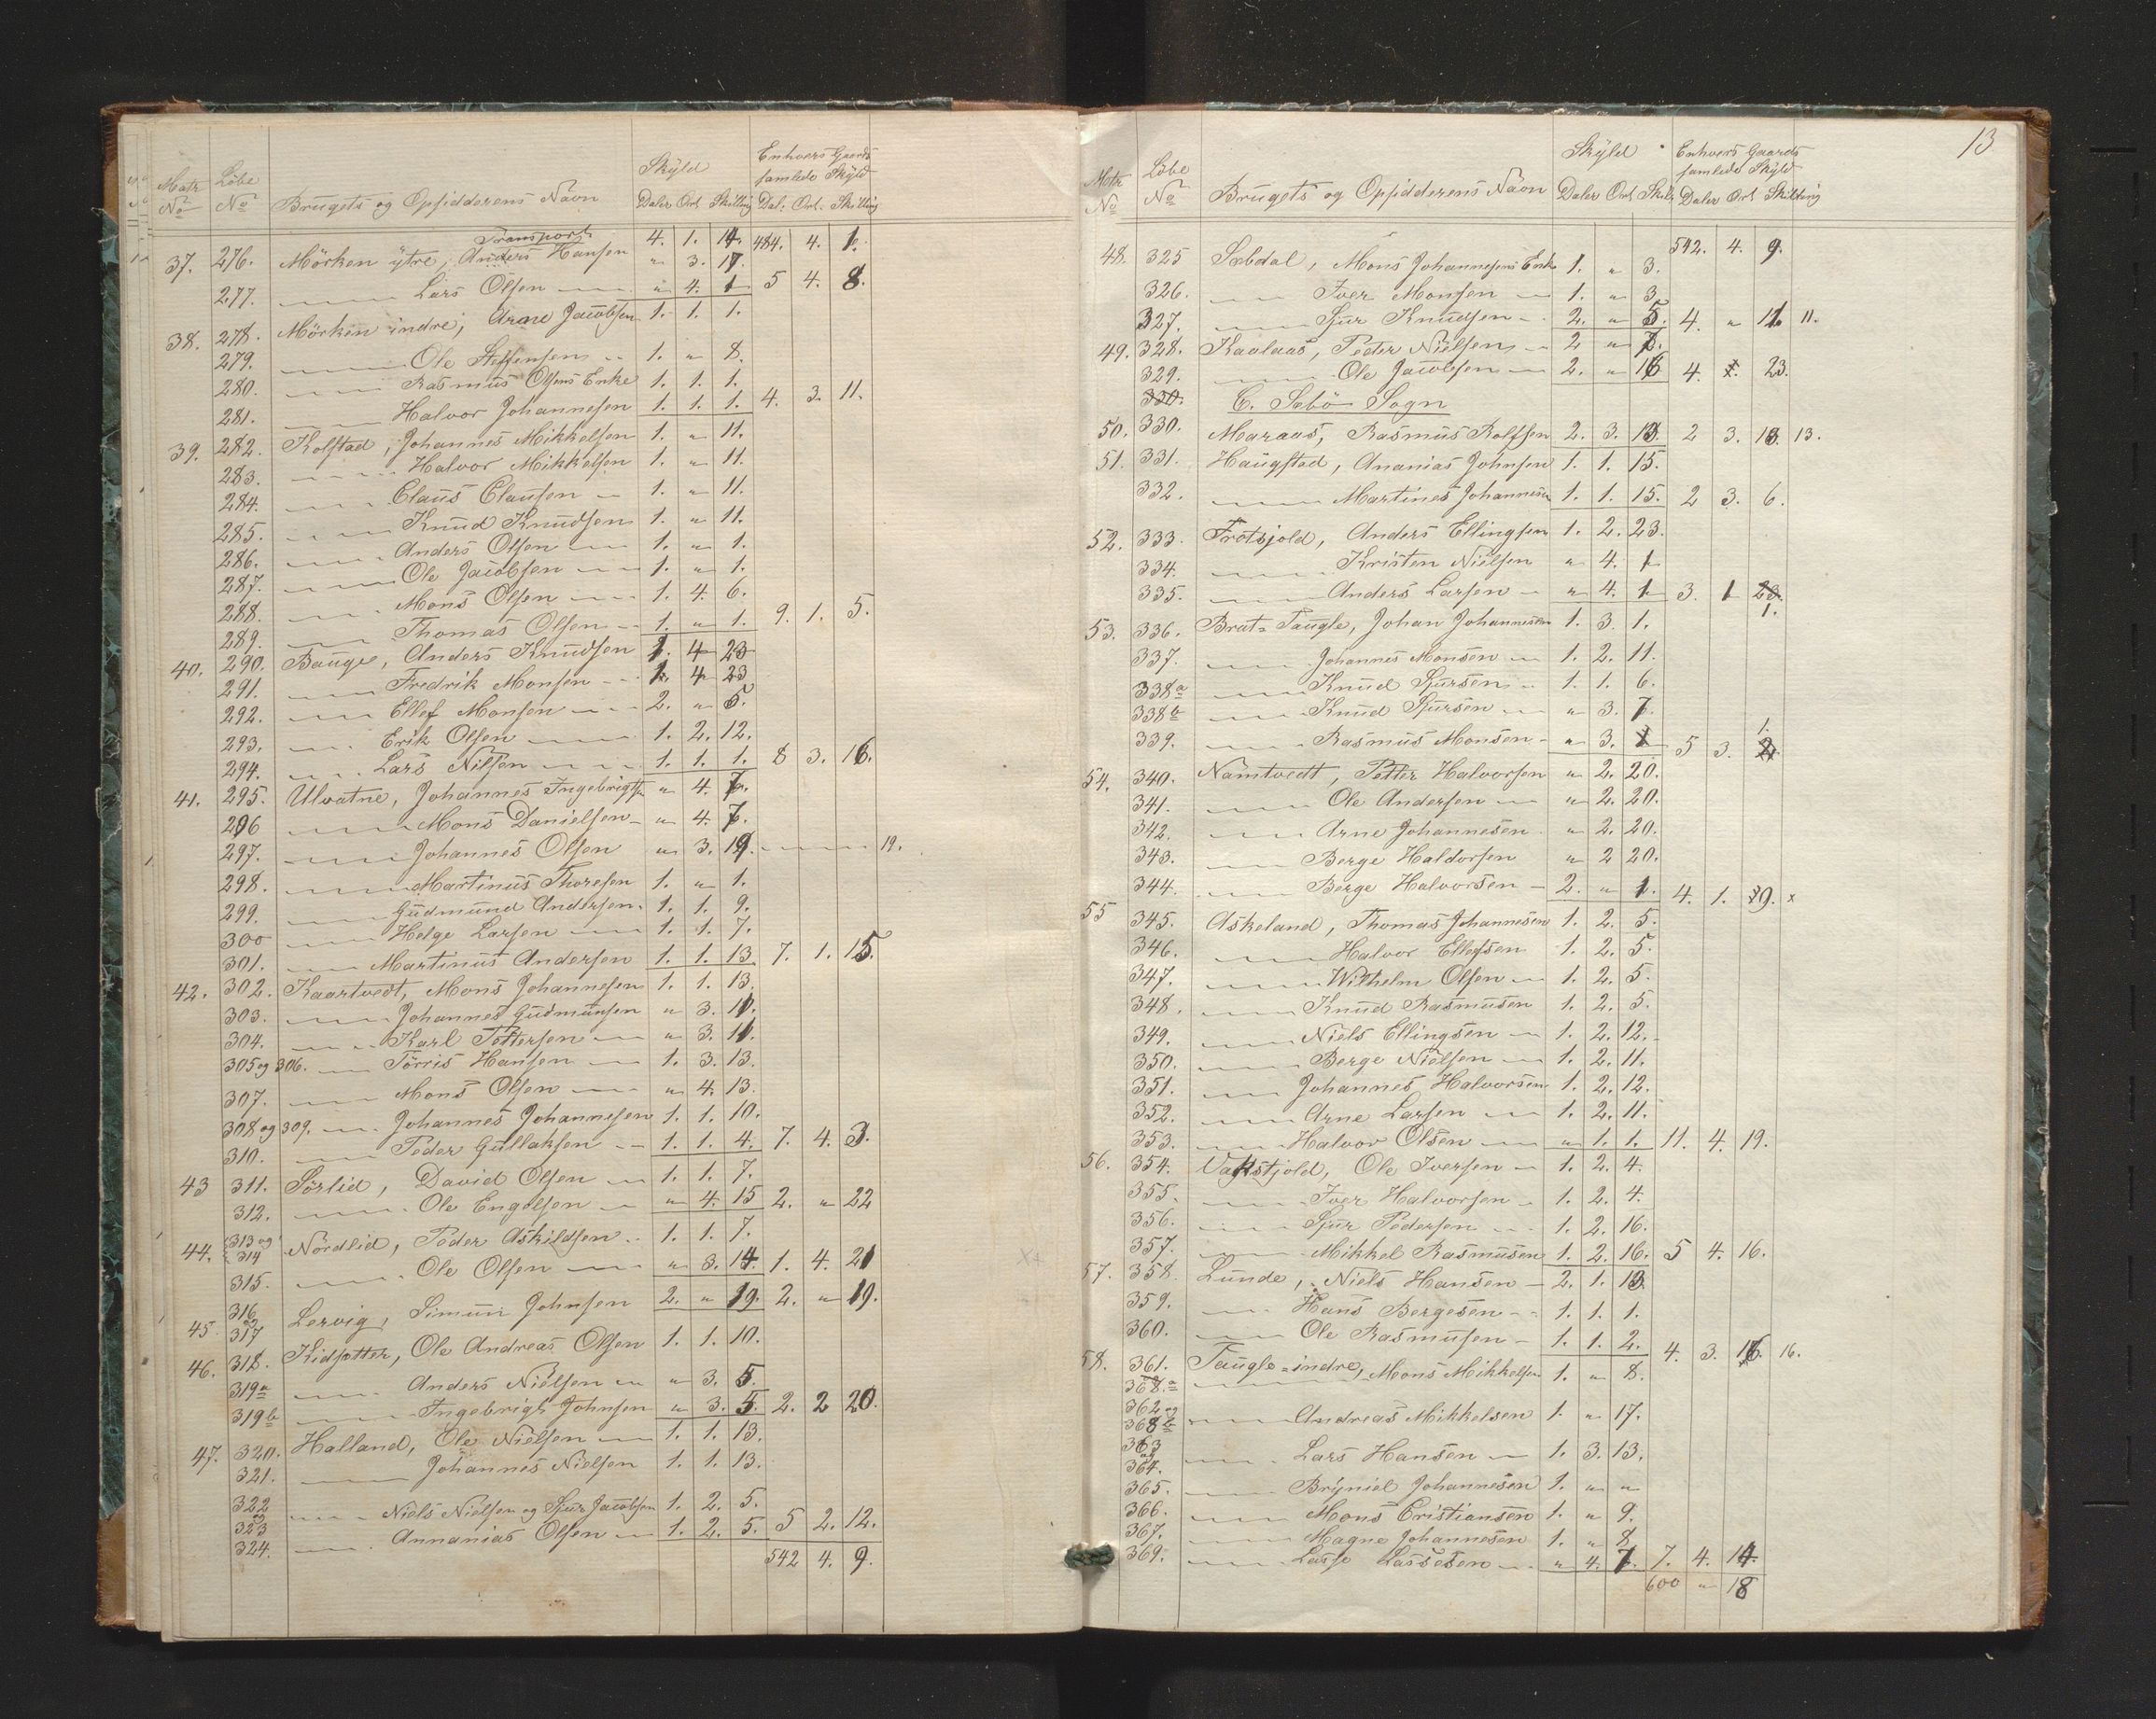 Matr No Løbe No Brugets og Opsidderens Navn Skyld Daler Ort Skilling Enhvers Gaards samlede Skyld Dal: Ort. Skilling
Transport 484. 4. 1.
37. 276. Mörken ytre, Anders Hansen 4. 1. 14.
" 3. 17.
277. Lars Olsen " 4. 1 5 4. 8.
38. 278. Mörken indre, Arne Jacobsen 1. 1. 1.
279. Ole Steffensen 1. " 8.
280. Rasmus Olsens Enke 1. 1. 1.
281. Halvor Johannesen 1. 1. 1. 4. 3. 11.
39. 282. Kolstad, Johannes Mikkelsen 1. " 11.
283. Halvor Mikkelsen 1. " 11.
284. Claus Clausen 1. " 11.
285. Knud Knudsen 1. " 11.
286. Anders Olsen 1. " 1.
287. Ole Jacobsen 1. " 1.
288. Mons Olsen 1. 4. 6.
289. Thomas Olsen 1. " 1. 9. 1. 5.
40. 290. Bauge, Anders Knudsen 1. 4 23
291. Fredrik Monsen 1. 4 23
292. Ellef Monsen 2. " 5.
293. Erik Olsen 1. 2. 12.
294. Lars Nilsen 1. 1. 1. 8 3. 16.
41. 295. Ulvatne, Johannes Ingebrigtsen " 4. 7.
296 Mons Danielsen " 4. 7.
297. Johannes Olsen " 3. 19. 19.
298. Martinus Thoresen 1. " 1.
299. Gudmund Andersen 1. 1. 9.
300 Helge Larsen 1. 1. 7.
301. Martinus Andersen 1. 1. 13 7. 1. 15.
42. 302. Kaartvedt, Mons Johannesen 1. 1. 13.
303. Johannes Gudmunsen " 3. 11.
304. Karl Tottersen " 3. 11.
305 og 306. Törris Hansen 1. 3. 13.
307. Mons Olsen " 4. 13.
308 og 309. Johannes Johannesen 1. 1. 10.
310. Peder Gullaksen 1. 1. 4. 7. 4. 3.
43 311. Sörlid, David Olsen 1. 1. 7.
312. Ole Engelsen " 4. 15 2. " 22
44. 313 og 314 Nordlid, Peder Askildsen 1. 1. 7.
315. Ole Olsen " 3. 14. 1. 4. 21
45. 316 og 317 Lervig, Simun Johnsen 2. " 19. 2. " 19.
46. 318. Kidsætter, Ole Andreas Olsen 1. 1. 10.
319a Anders Nielsen " 3. 5.
319b Ingebrigt Johnsen " 3. 5. 2. 2 20.
47. 320. Halland, Ole Nielsen 1. 1. 13.
321. Johannes Nielsen 1. 1. 13.
322 og 323 Niels Nielsen og Sjur Jacobsen 1. 2. 5.
324. Annanias Olsen 1. 2. 5. 5 2. 12.
542 4. 9.
13
Matr No Løbe No Brugets og Opsidderens Navn Skyld Daler Ort Skil: Enhvers Gaards samlede Skyld Daler Ort Skilling
542. 4. 9.
48. 325 Sæbdal, Mons Johannesens Enke 1. " 3.
326. Iver Monsen 1. " 3
327. Sjur Knudsen 2. " 5. 4. " 11. 11.
49. 328. Kaalaas, Peder Nielsen 2 " 7.
329. Ole Jacobsen 2. " 16 4. 1. 23.
330. C. Sæbö Sogn
50. 330. Maraas, Rasmus Rolfsen 2. 3. 13. 2 3. 13. 13.
51. 331. Haugstad, Ananias Johnsen 1. 1. 15.
332. Martines Johannesen 1. 1. 15. 2 3. 6.
52. 333. Frotsjold, Anders Ellingsen 1. 2. 23.
334. Kristen Nielsen " 4. 1
335. Anders Larsen " 4. 1 3. 1 23. 1.
53. 336. Brat=Taugle, Johan Johannesen 1. 3. 1.
337. Johannes Monsen 1. 2. 11.
338a Knud Sjursen 1. 1. 6.
338b Knud Sjursen " 3. 7.
339. Rasmus Monsen " 3. 1 5 3. 2. 1.
54. 340. Namtvedt, Petter Halvorsen " 2. 20.
341. Ole Andersen " 2. 20.
342. Arne Johannesen " 2. 20.
343. Berge Haldorsen " 2 20.
344. Berge Halvorsen 2. " 1. 4. 1. 9. x
55 345. Askeland, Thomas Johannesen 1. 2. 5.
346. Halvor Ellefsen 1. 2. 5.
347. Wilhelm Olsen 1. 2. 5.
348. Knud Rasmusen 1. 2. 5.
349. Niels Ellingsen 1. 2. 12.
350. Berge Nielsen 1. 2. 11.
351. Johannes Halvorsen 1. 2. 12.
352. Arne Larsen 1. 2. 11.
353. Halvor Olsen " 1. 1. 11. 4. 19.
56. 354. Vakstjold, Ole Iversen 1. 2. 4.
355. Iver Halvorsen 1. 2. 4.
356. Sjur Pedersen 1. 2. 16.
357. Mikkel Rasmusen 1. 2. 16. 5 4. 16.
57. 358. Lunde, Niels Hansen 2. 1. 13.
359. Hans Bergesen 1. 1. 1.
360. Ole Rasmusen 1. 1. 2. 4. 3. 16. 16.
58. 361. 368.a Taugle=indre, Mons Mikkelsen 1. " 8.
362 og 368b Andreas Mikkelsen 1. " 17.
363 og 364. Lars Hansen 1. 3. 13.
365. Bryniel Johannesen 1. " "
366. Mons Cristiansen 1. " 9.
367. Magne Johannesen 1. " 8
369. Lasse Lassesen " 4. 7. 7. 4. 14.
600 " 18